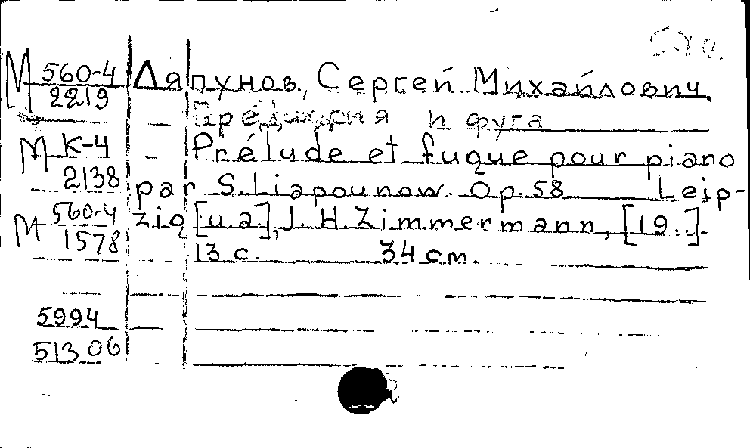 М 560-4 Ляпунов, Сергей Михайлович.
2219
Прелюдия и фуга
М К-4 Prélude et fugue pour piano
2138 par S. Liapounow. Op. 58 Leip-
М 560-4 zig [u. a], J. H. Zimmermann, [19..].
1578
13 с. 34 см.
5994
51306